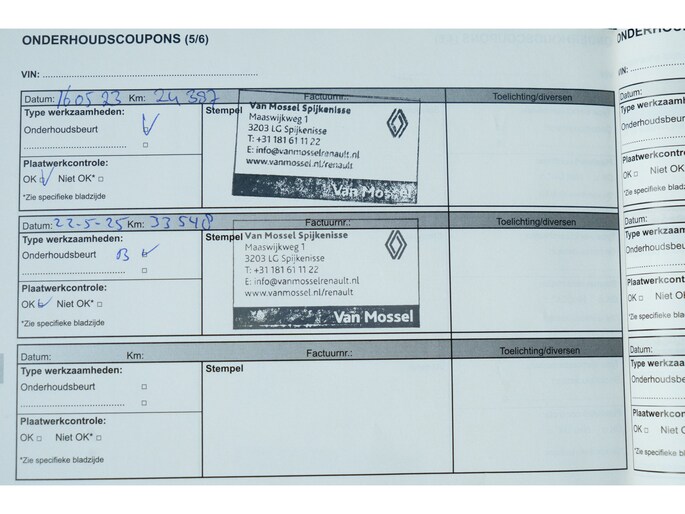 ONDERHOUDSCOUPONS (5/6)
VIN:
Datum: 16 05 23 Km: 24 387 Factuurnr.: Toelichting/diversen
Type werkzaamheden:
Onderhoudsbeurt
Plaatwerkcontrole:
OK Niet OK*
*Zie specifieke bladzijde
Stempel
Van Mossel Spijkenisse
Maaswijkweg 1
3203 LG Spijkenisse
T: +31 181 61 11 22
E: info@vanmosselrenault.nl
www.vanmossel.nl/renault
Van Mossel
Datum: 22-5-25 Km: 33 548 Factuurnr.: Toelichting/diversen
Type werkzaamheden:
Onderhoudsbeurt B
Plaatwerkcontrole:
OK Niet OK*
*Zie specifieke bladzijde
Stempel
Van Mossel Spijkenisse
Maaswijkweg 1
3203 LG Spijkenisse
T: +31 181 61 11 22
E: info@vanmosselrenault.nl
www.vanmossel.nl/renault
Van Mossel
Datum: Km: Factuurnr.: Toelichting/diversen
Type werkzaamheden:
Onderhoudsbeurt
Plaatwerkcontrole:
OK Niet OK*
*Zie specifieke bladzijde
Stempel
VIN:
Datum:
Type werkzaam
Onderhoudsbeu
Plaatwerkcontro
OK Niet O
*Zie specifieke bla
Datum:
Type werkzaam
Onderhoudsbeu
Plaatwerkcontro
OK Niet O
*Zie specifieke bla
Datum:
Type werkza
Onderhoudsbeu
Plaatwerkcon
OK Niet
*Zie specifieke bla